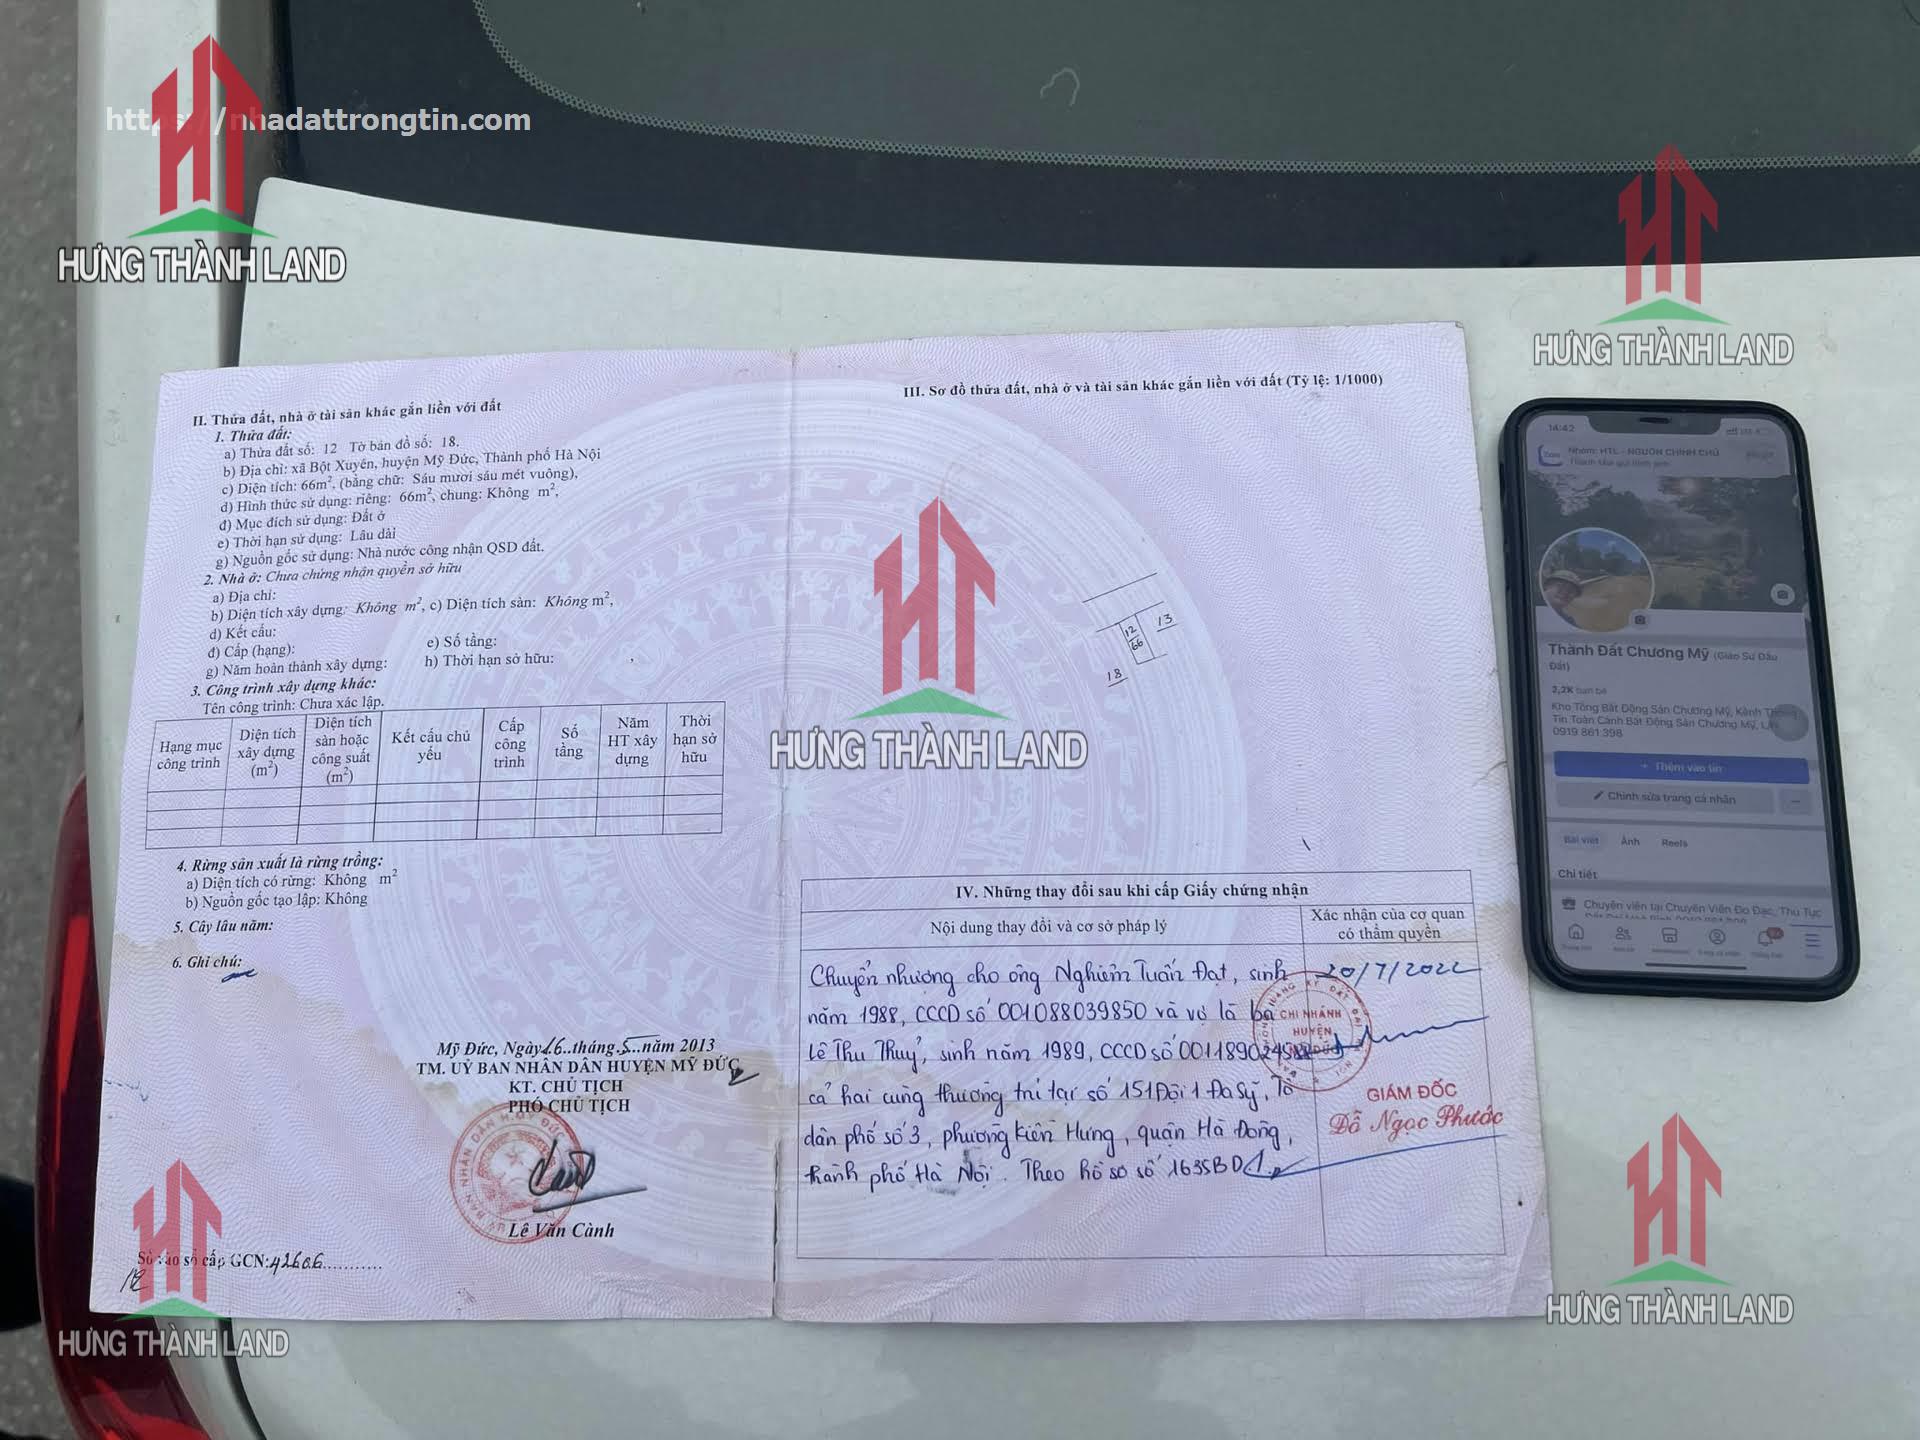 https://nhadattrongtin.com
HƯNG THÀNH LAND
HƯNG THÀNH LAND
II. Thửa đất, nhà ở tài sản khác gắn liền với đất
1. Thửa đất:
a) Thửa đất số: 12 Tờ bản đồ số: 18.
b) Địa chỉ: xã Bột Xuyên, huyện Mỹ Đức, Thành phố Hà Nội
c) Diện tích: 66m², (bằng chữ: Sáu mươi sáu mét vuông),
d) Hình thức sử dụng: riêng: 66m², chung: Không m²,
đ) Mục đích sử dụng: Đất ở
e) Thời hạn sử dụng: Lâu dài
g) Nguồn gốc sử dụng: Nhà nước công nhận QSD đất.
2. Nhà ở: Chưa chứng nhận quyền sở hữu
a) Địa chỉ:
b) Diện tích xây dựng: Không m², c) Diện tích sàn: Không m²,
d) Kết cấu:
đ) Cấp (hạng): e) Số tầng:
g) Năm hoàn thành xây dựng: h) Thời hạn sở hữu:
3. Công trình xây dựng khác:
Tên công trình: Chưa xác lập.
Hạng mục công trình
Diện tích xây dựng (m²)
Diện tích sàn hoặc công suất (m²)
Kết cấu chủ yếu
Cấp công trình
Số tầng
Năm HT xây dựng
Thời hạn sở hữu
4. Rừng sản xuất là rừng trồng:
a) Diện tích có rừng: Không m²
b) Nguồn gốc tạo lập: Không
5. Cây lâu năm:
6. Ghi chú:
Mỹ Đức, Ngày 16..tháng.5...năm 2013
TM. UỶ BAN NHÂN DÂN HUYỆN MỸ ĐỨC
KT. CHỦ TỊCH
PHÓ CHỦ TỊCH
Lê Văn Cành
Số vào sổ cấp GCN: 42606...........
HƯNG THÀNH LAND
III. Sơ đồ thửa đất, nhà ở và tài sản khác gắn liền với đất (Tỷ lệ: 1/1000)
12
66
13
18
HƯNG THÀNH LAND
IV. Những thay đổi sau khi cấp Giấy chứng nhận
Nội dung thay đổi và cơ sở pháp lý
Xác nhận của cơ quan
có thẩm quyền
Chuyển nhượng cho ông Nghiêm Tuấn Đạt, sinh
năm 1988, CCCD số 001088039850 và vợ là bà
Lê Thu Thuỷ, sinh năm 1989, CCCD số
cả hai cùng thường trú tại số 151 Đội 1 Đa Sỹ, Tổ
dân phố số 3, phường Kiến Hưng, quận Hà Đông,
thành phố Hà Nội. Theo hồ sơ số
20/7/2022
CHI NHÁNH
HUYỆN
GIÁM ĐỐC
Đỗ Ngọc Phước
14:42
Nhóm: HTL - NGUỒN CHÍNH CHỦ
Thành Đất Chương Mỹ (Giáo Sư Đầu
Đất)
2,2K bạn bè
Kho Tổng Bất Động Sản Chương Mỹ, Kênh Thông
Tin Toàn Cảnh Bất Động Sản Chương Mỹ,
0919 861 398
+ Thêm vào tin
Chỉnh sửa trang cá nhân
Bài viết Ảnh Reels
Chi tiết
Chuyên viên tại Chuyên Viên Đo Đạc, Thủ Tục
HƯNG THÀNH LAND